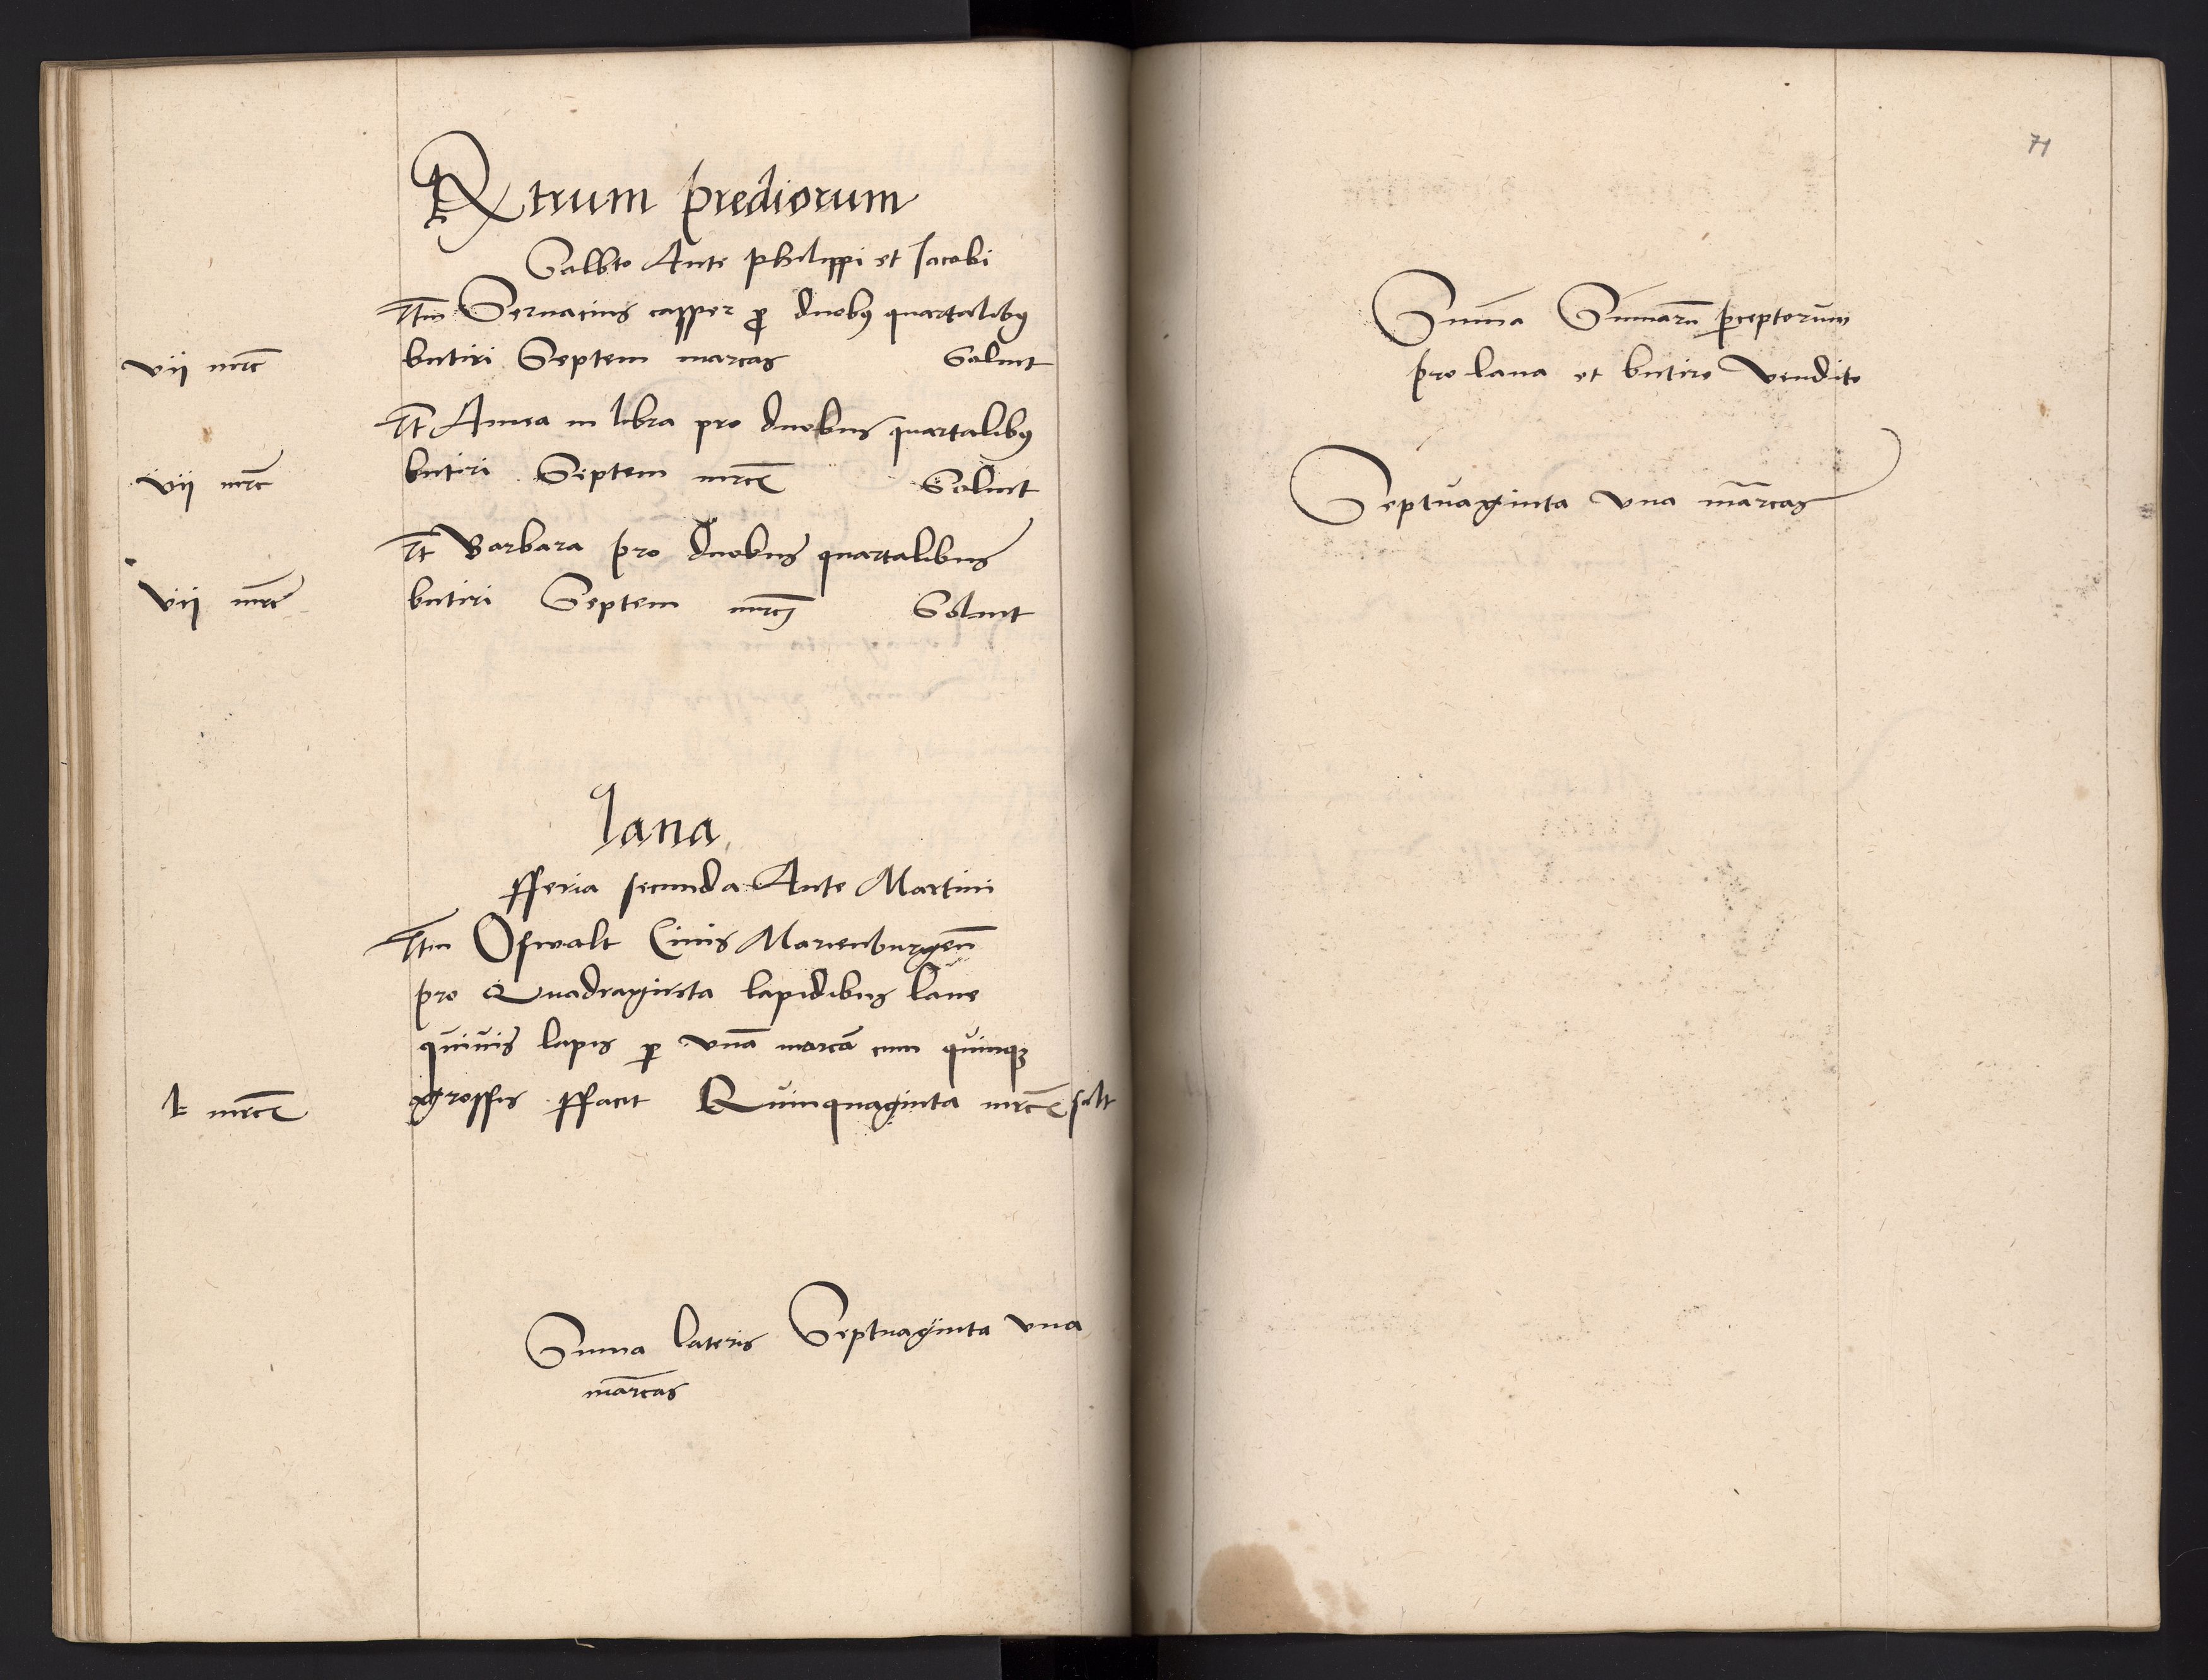 trum prediorum
Sabbto Ante philippi et Jacobi
Itm Servacius casper pro duobus quartalibus
vii mrc butiri Septem marcas Soluit
It Annea in libra pro duobus quartalibus
vii mrc butiri Septem mrc Soluit
It Barbara pro duobus quartalibus
vii mrc butiri Septem mrc Soluit
lana
fferia secunda Ante Martini
Itm Oswalt Civis Marienburgen
pro Quadraginta lapidibus lane
quivis lapis per una marca cum quinque
l mrc grossis ffacit Quinquaginta mrc solt
Summa lateris Septuaginta una
marcas
71
Suma Sumaru perceptorum
pro lana et butiro vendito
Septuaginta una marcas